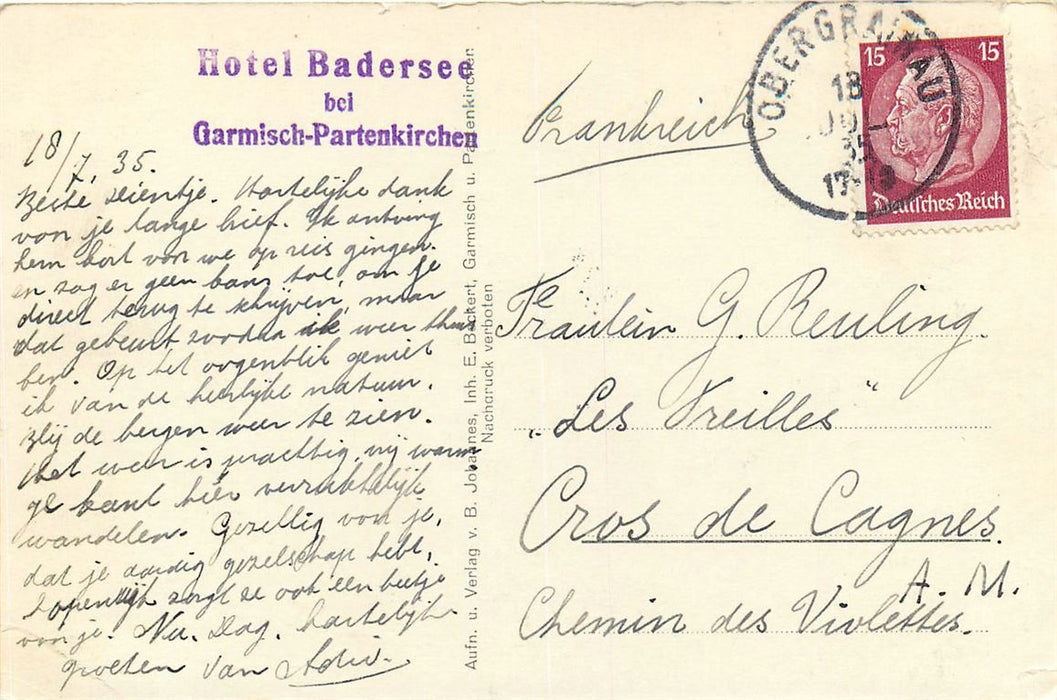 Hotel Badersee
bei
Garmisch-Partenkirchen
18/7. 35.
Beste Leintje. Hartelijke dank
voor je lange brief. Ik ontving
hem kort voor we op reis gingen.
en zag er geen kans toe, om je
direct terug te schrijven, maar
dat gebeurt zoodra ik weer thuis
ben. Op het oogenblik geniet
ik van de heerlijke natuur.
blij de bergen weer te zien.
Het weer is prachtig, vrij warm
je kunt hier verrukkelijk
wandelen. Gezellig voor je,
dat je aardig gezelschap hebt,
hopenlijk zorgt ze ook een beetje
voor je. Nu. Dag. hartelijke
groeten van
Aufn. u. Verlag v. B. Johannes, Inh. E. Beckert, Garmisch u. Partenkirchen
Nachdruck verboten
Frankreich
OBERGRAINAU
18
35
17-
15 15
Deutsches Reich
Fräulein G. Reuling.
„Les Treilles"
Cros de Cagnes.
A. M.
Chemin des Violettes.